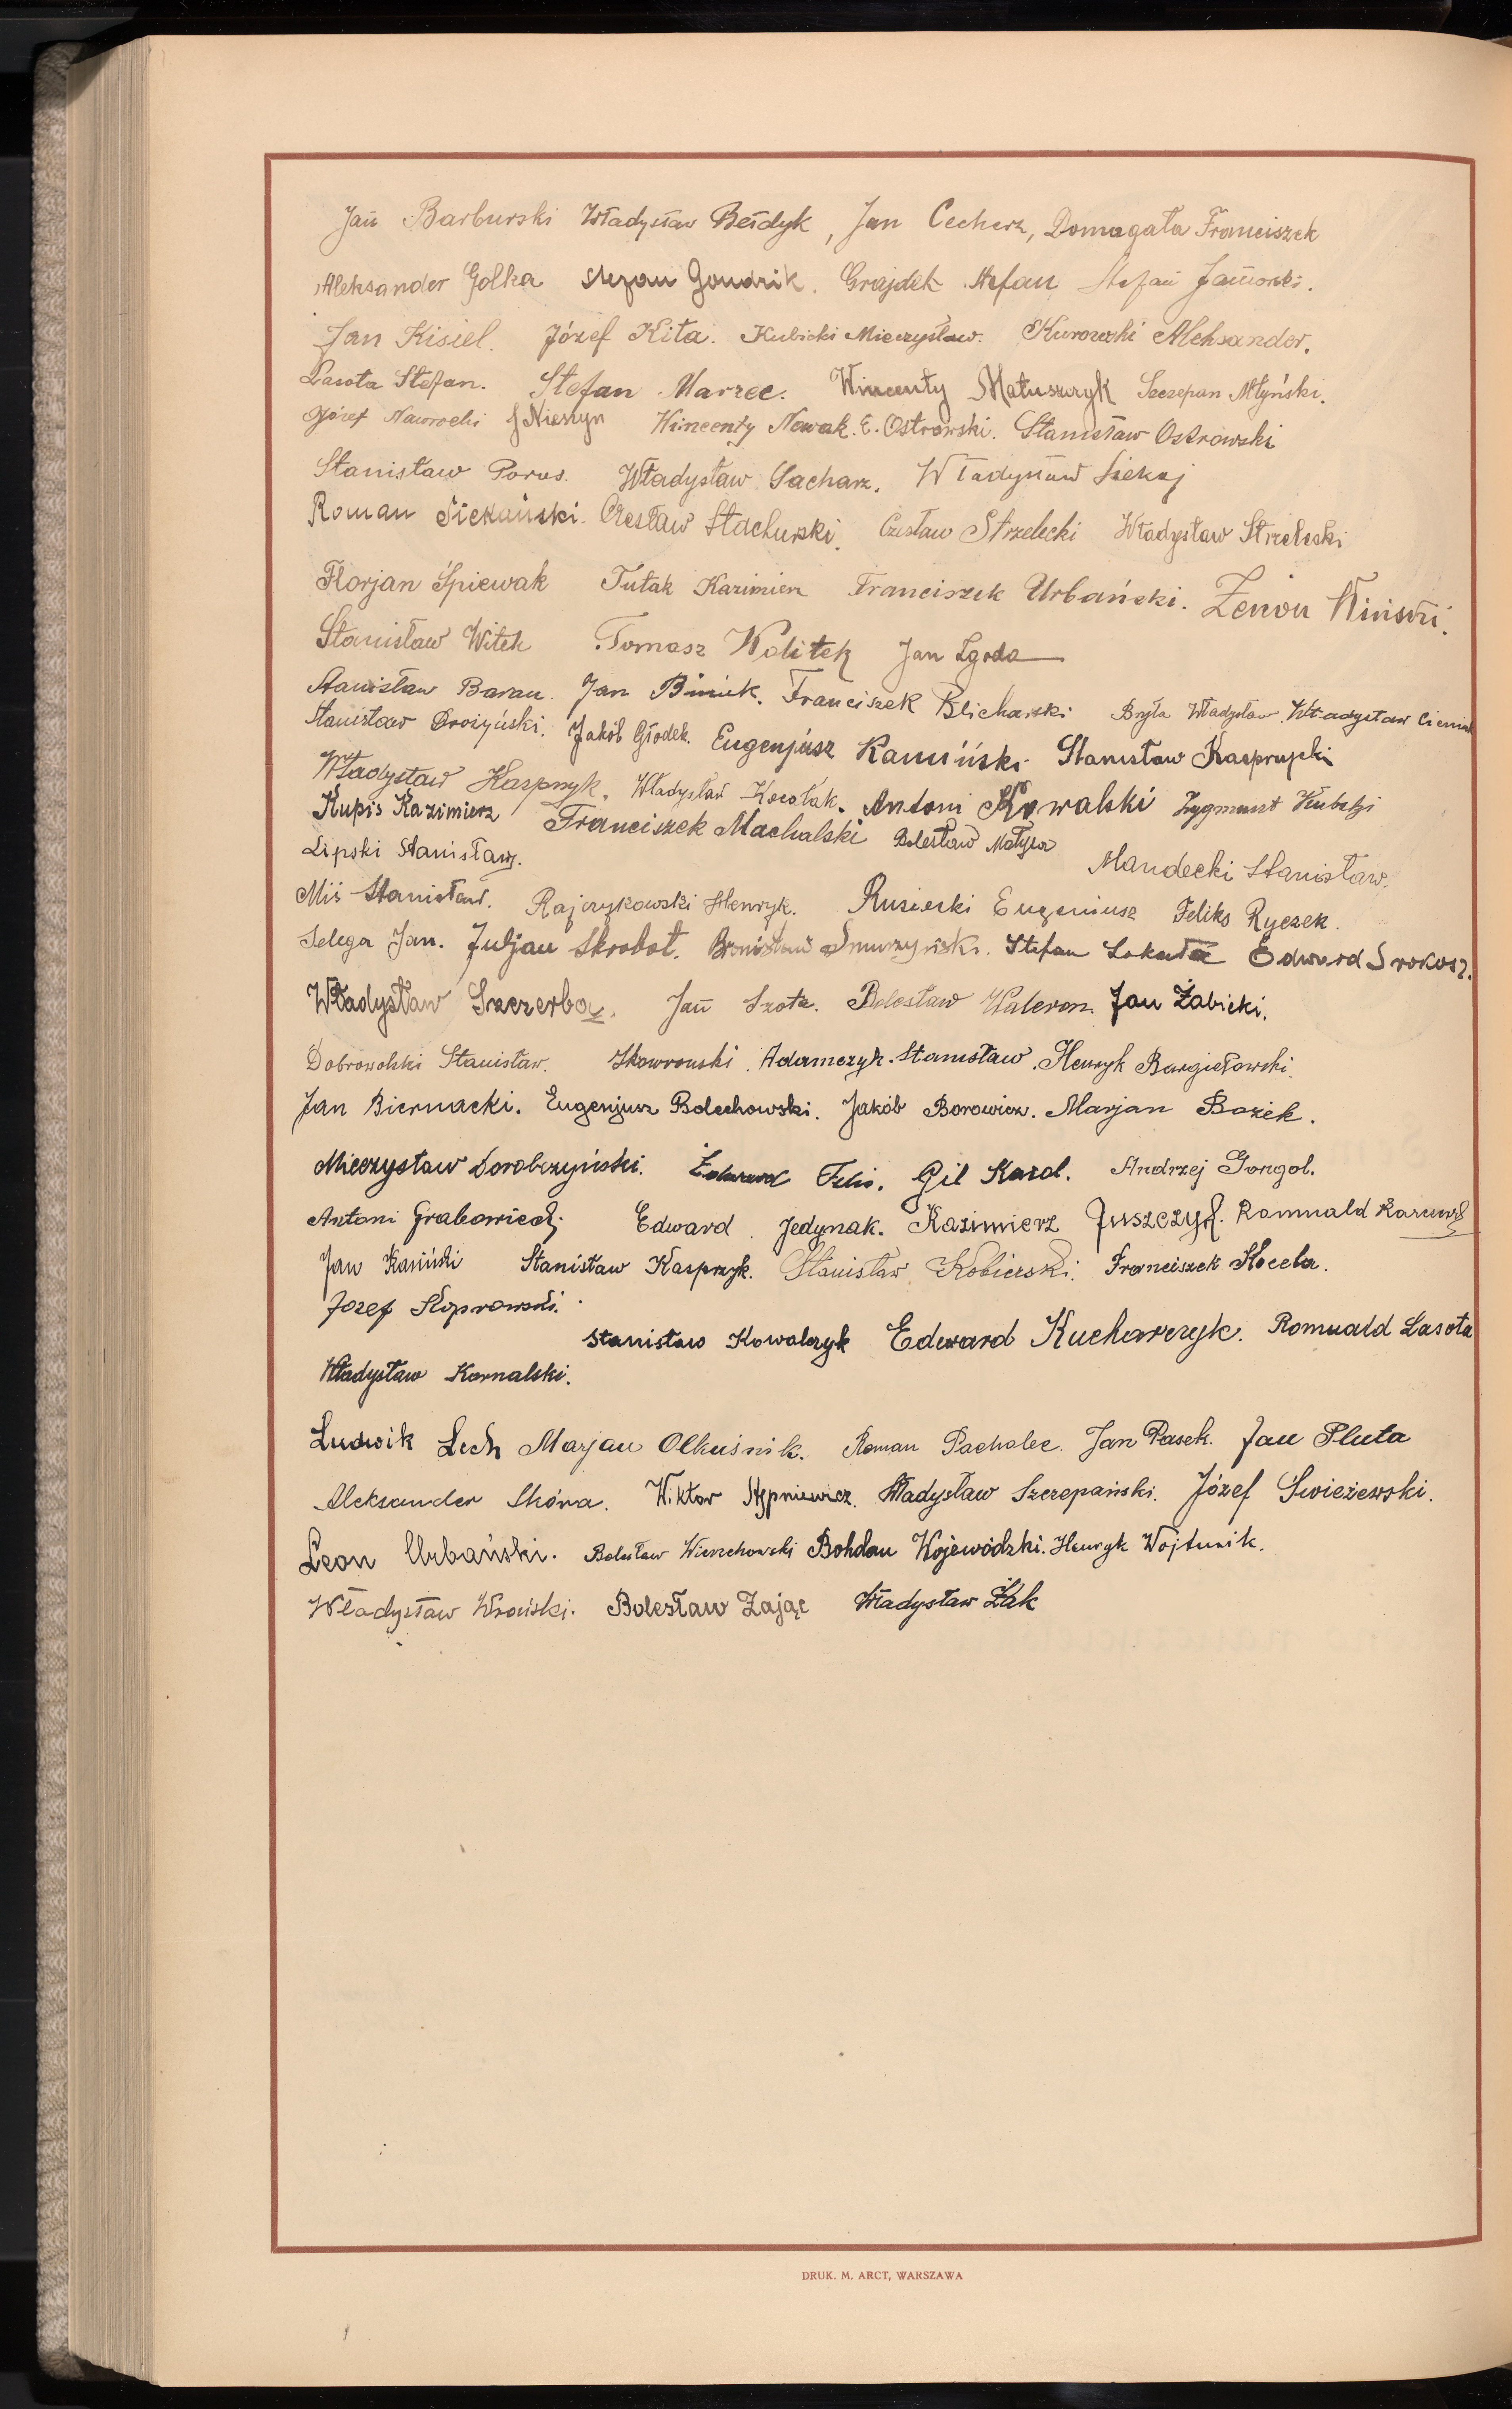 Jan Barburski Władysław Bełdyk, Jan Cecherz, Domagała Franciszek
Aleksander Golka Stefan Goudzik. Grajdek Stefan Stefan Jaworski.
Jan Kisiel. Józef Kita. Kubicki Mieczysław. Kurowski Aleksander.
Lasota Stefan. Stefan Marzec. Wincenty Matuszczyk Szczepan Młyński.
Józef Nawrocki J Nieszyn Wincenty Nowak. E. Ostrowski. Stanisław Ostrowski
Stanisław Porus. Władysław Sacharz. Władysław Siekaj
Roman Siekański. Czesław Stachurski. Czesław Strzelecki Władysław Strzelecki
Florjan Śpiewak Tutak Kazimierz Franciszek Urbański. Zenon Winiski.
Stanisław Witek Tomasz Wolitek Jan Zgoda
Stanisław Baran. Jan Biniek. Franciszek Blicharski Bryła Władysław. Władysław Cieniak
Stanisław Drożyński. Jakób Głodek. Eugenjusz Kamiński. Stanisław Kasprzycki
Władysław Kasprzyk. Władysław Kowalak. Antoni Kowalski Zygmunt
Kupis Kazimierz Franciszek Machalski Bolesław Matysa
Lipski Stanisław. Mandecki Stanisław.
Miś Stanisław. Rajczykowski Henryk. Rusiecki Eugeniusz Feliks Ryczek.
Selega Jan. Juljan Skrobot. Bronisław Smurzyński. Stefan Sokuła Edward Srokosz.
Władysław Szczerba. Jan Szota. Bolesław Waleron. Jan Żabicki.
Dobrowolski Stanisław. Skowroński. Adamczyk Stanisław. Henryk Bargiełowski.
Jan Biernacki. Eugenjusz Bolechowski. Jakób Borowicz. Marjan Bożek.
Mieczysław Dorobczyński. Edward Gil Karol. Andrzej Gongol.
Antoni Grabowiecki Edward Jedynak. Kazimierz Juszczyk. Romuald
Jan Kaniński Stanisław Kasprzyk. Stanisław Kobierski. Franciszek Kocela.
Józef Koprowski.
Stanisław Kowalczyk Edward Kucharczyk. Romuald Lasota
Władysław Kornalski.
Ludwik Lech Marjan Olkuśnik. Roman Pacholec. Jan Pasek. Jan Pluta
Aleksander Skóra. Wiktor Stępniewicz. Władysław Szczepański. Józef Świeżewski.
Leon Urbański. Bolesław Wierzchowski Bohdan Wojewódzki. Henryk Wojtunik.
Władysław Wroński. Bolesław Zając Władysław Żak
DRUK. M. ARCT, WARSZAWA